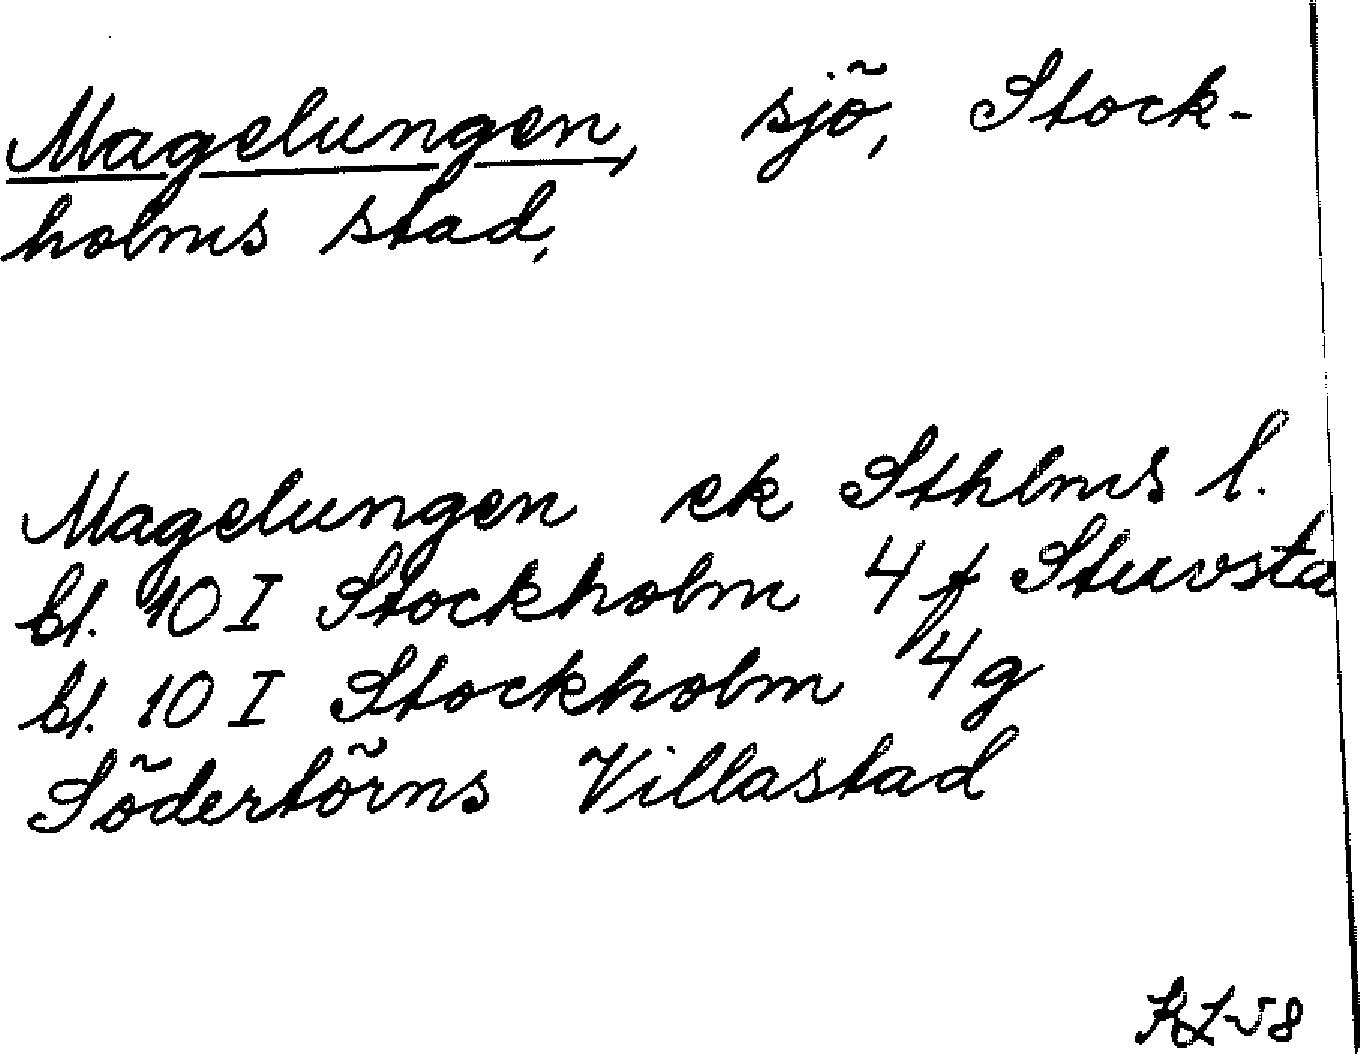 Magelungen, sjö, Stock-
holms stad,
Magelungen ek Sthlms l.
bl. 10 I Stockholm 4 f Stuvsta
bl. 10 I Stockholm 4g
Södertörns Villastad
KL-58